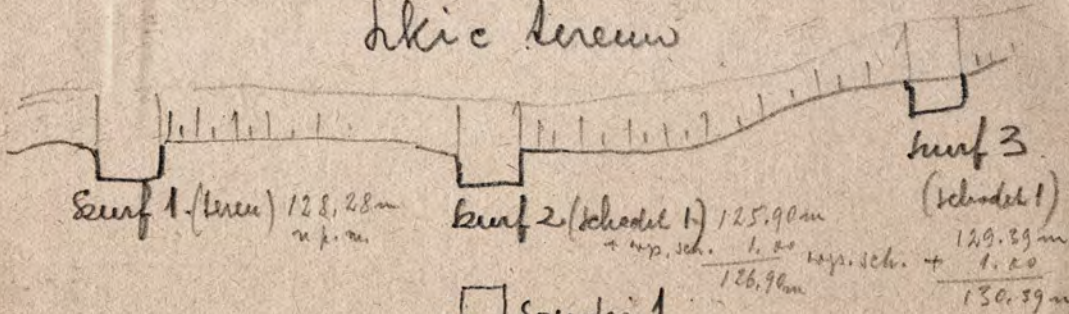 Szkic terenu
Szurf 1 (teren) 128,28 m
n.p.m.
Szurf 2 (schodek 1) 125.90 m
+ wys. sch. 1.00
126,90 m
Szurf 3
(schodek 1)
129.39 m
wys. sch. + 1.00
130.39 m
1